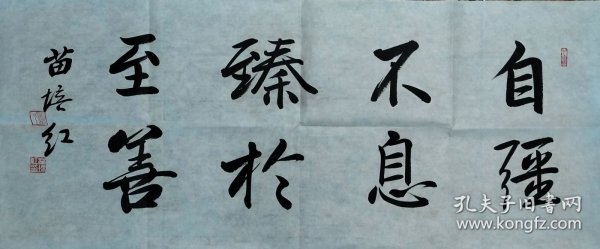 自彊
不息
臻於
至善
苗培红
孔夫子旧书网
www.kongfz.com